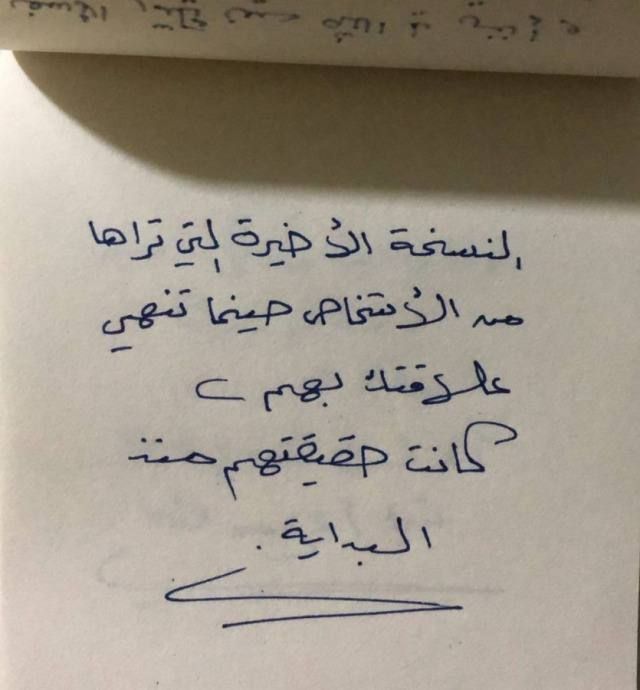 النسخة الأخيرة التي تراها
من الأشخاص حينما تنهي
علاقتك بهم
كانت حقيقتهم منذ
البداية.